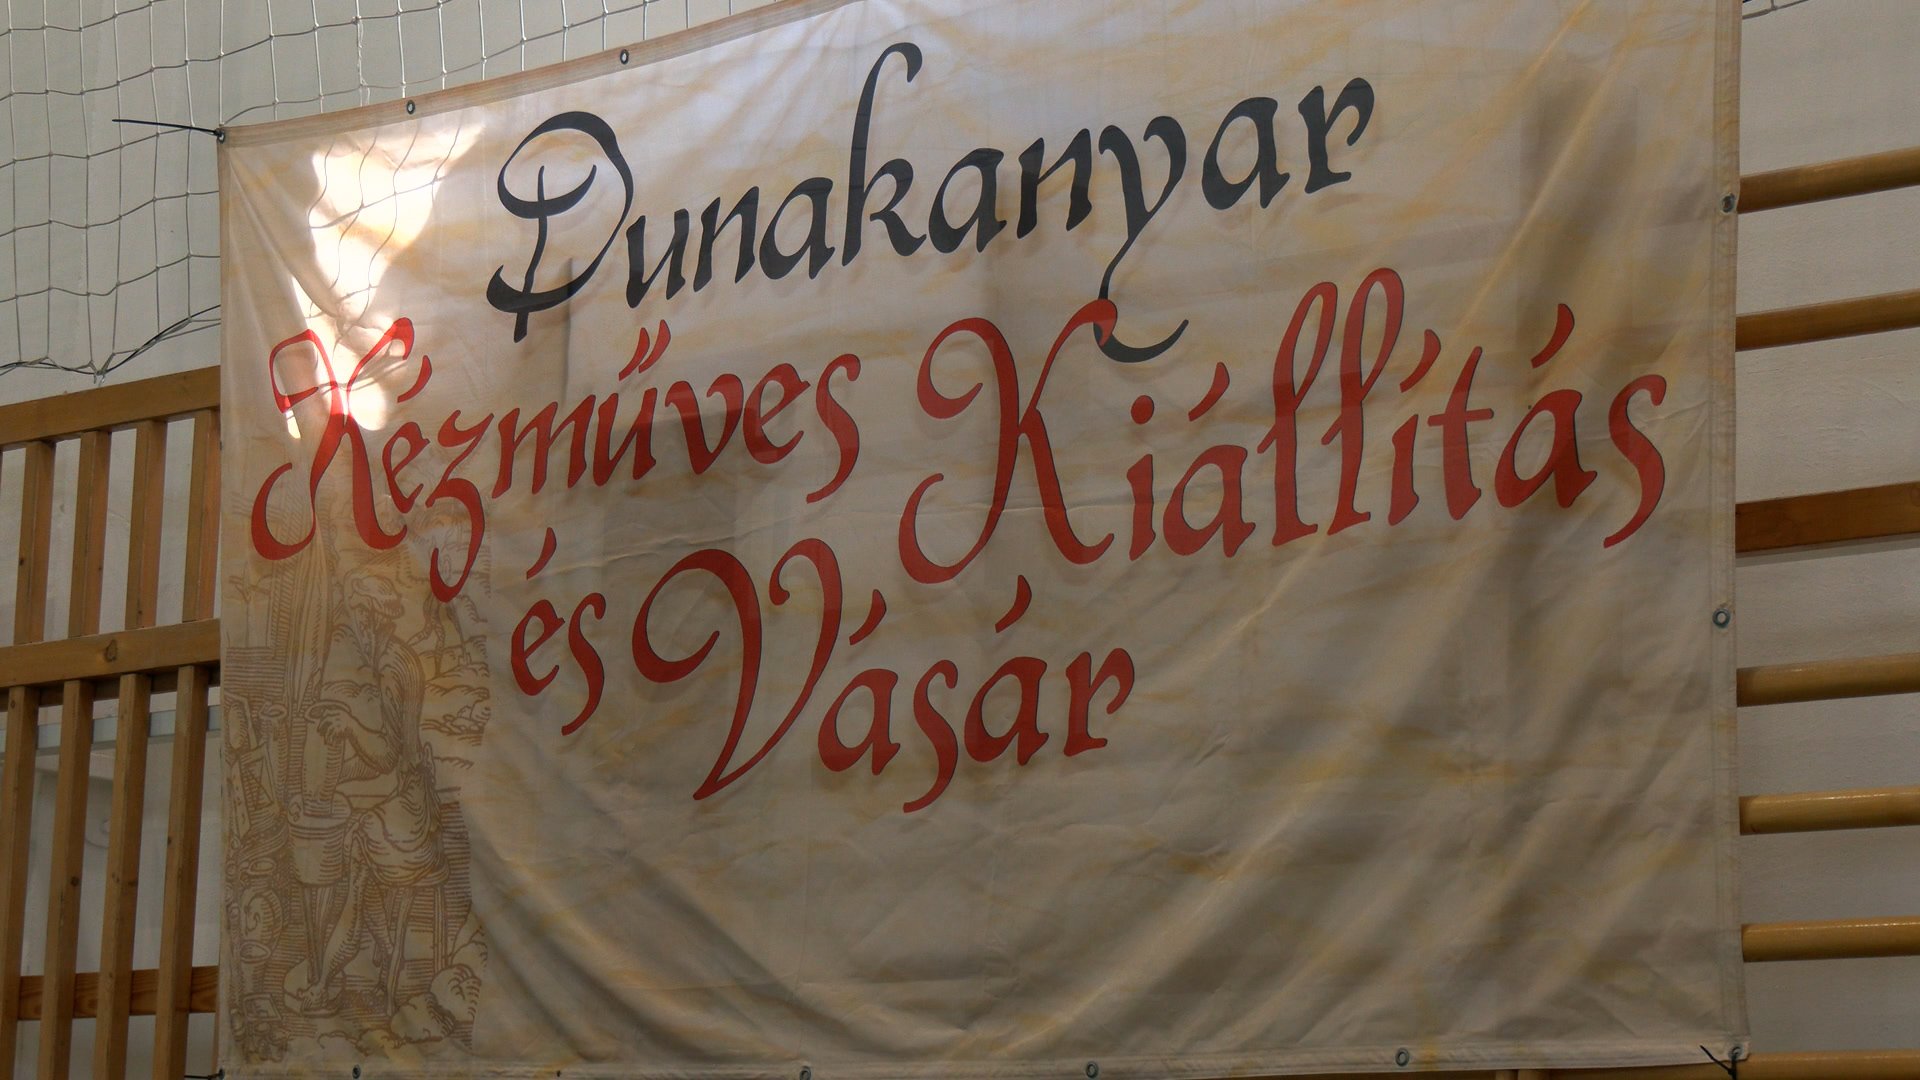 Dunakanyar
Kézműves Kiállítás
és Vásár